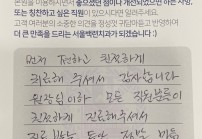 본원을 이용하시면서 좋으셨던 점이나 개선되었으면 하는 사항,
또는 칭찬하고 싶은 직원이 있으시다면 알려주세요.
고객 여러분의 소중한 의견을 정성껏 귀담아듣고 반영하여
더 큰 만족을 드리는 서울백련치과가 되겠습니다 :)
먼저 전하고 친절하게
치료해 주셔서 감사합니다
원장님 이하 모든 직원분들이
친절하게 진료해주셔서